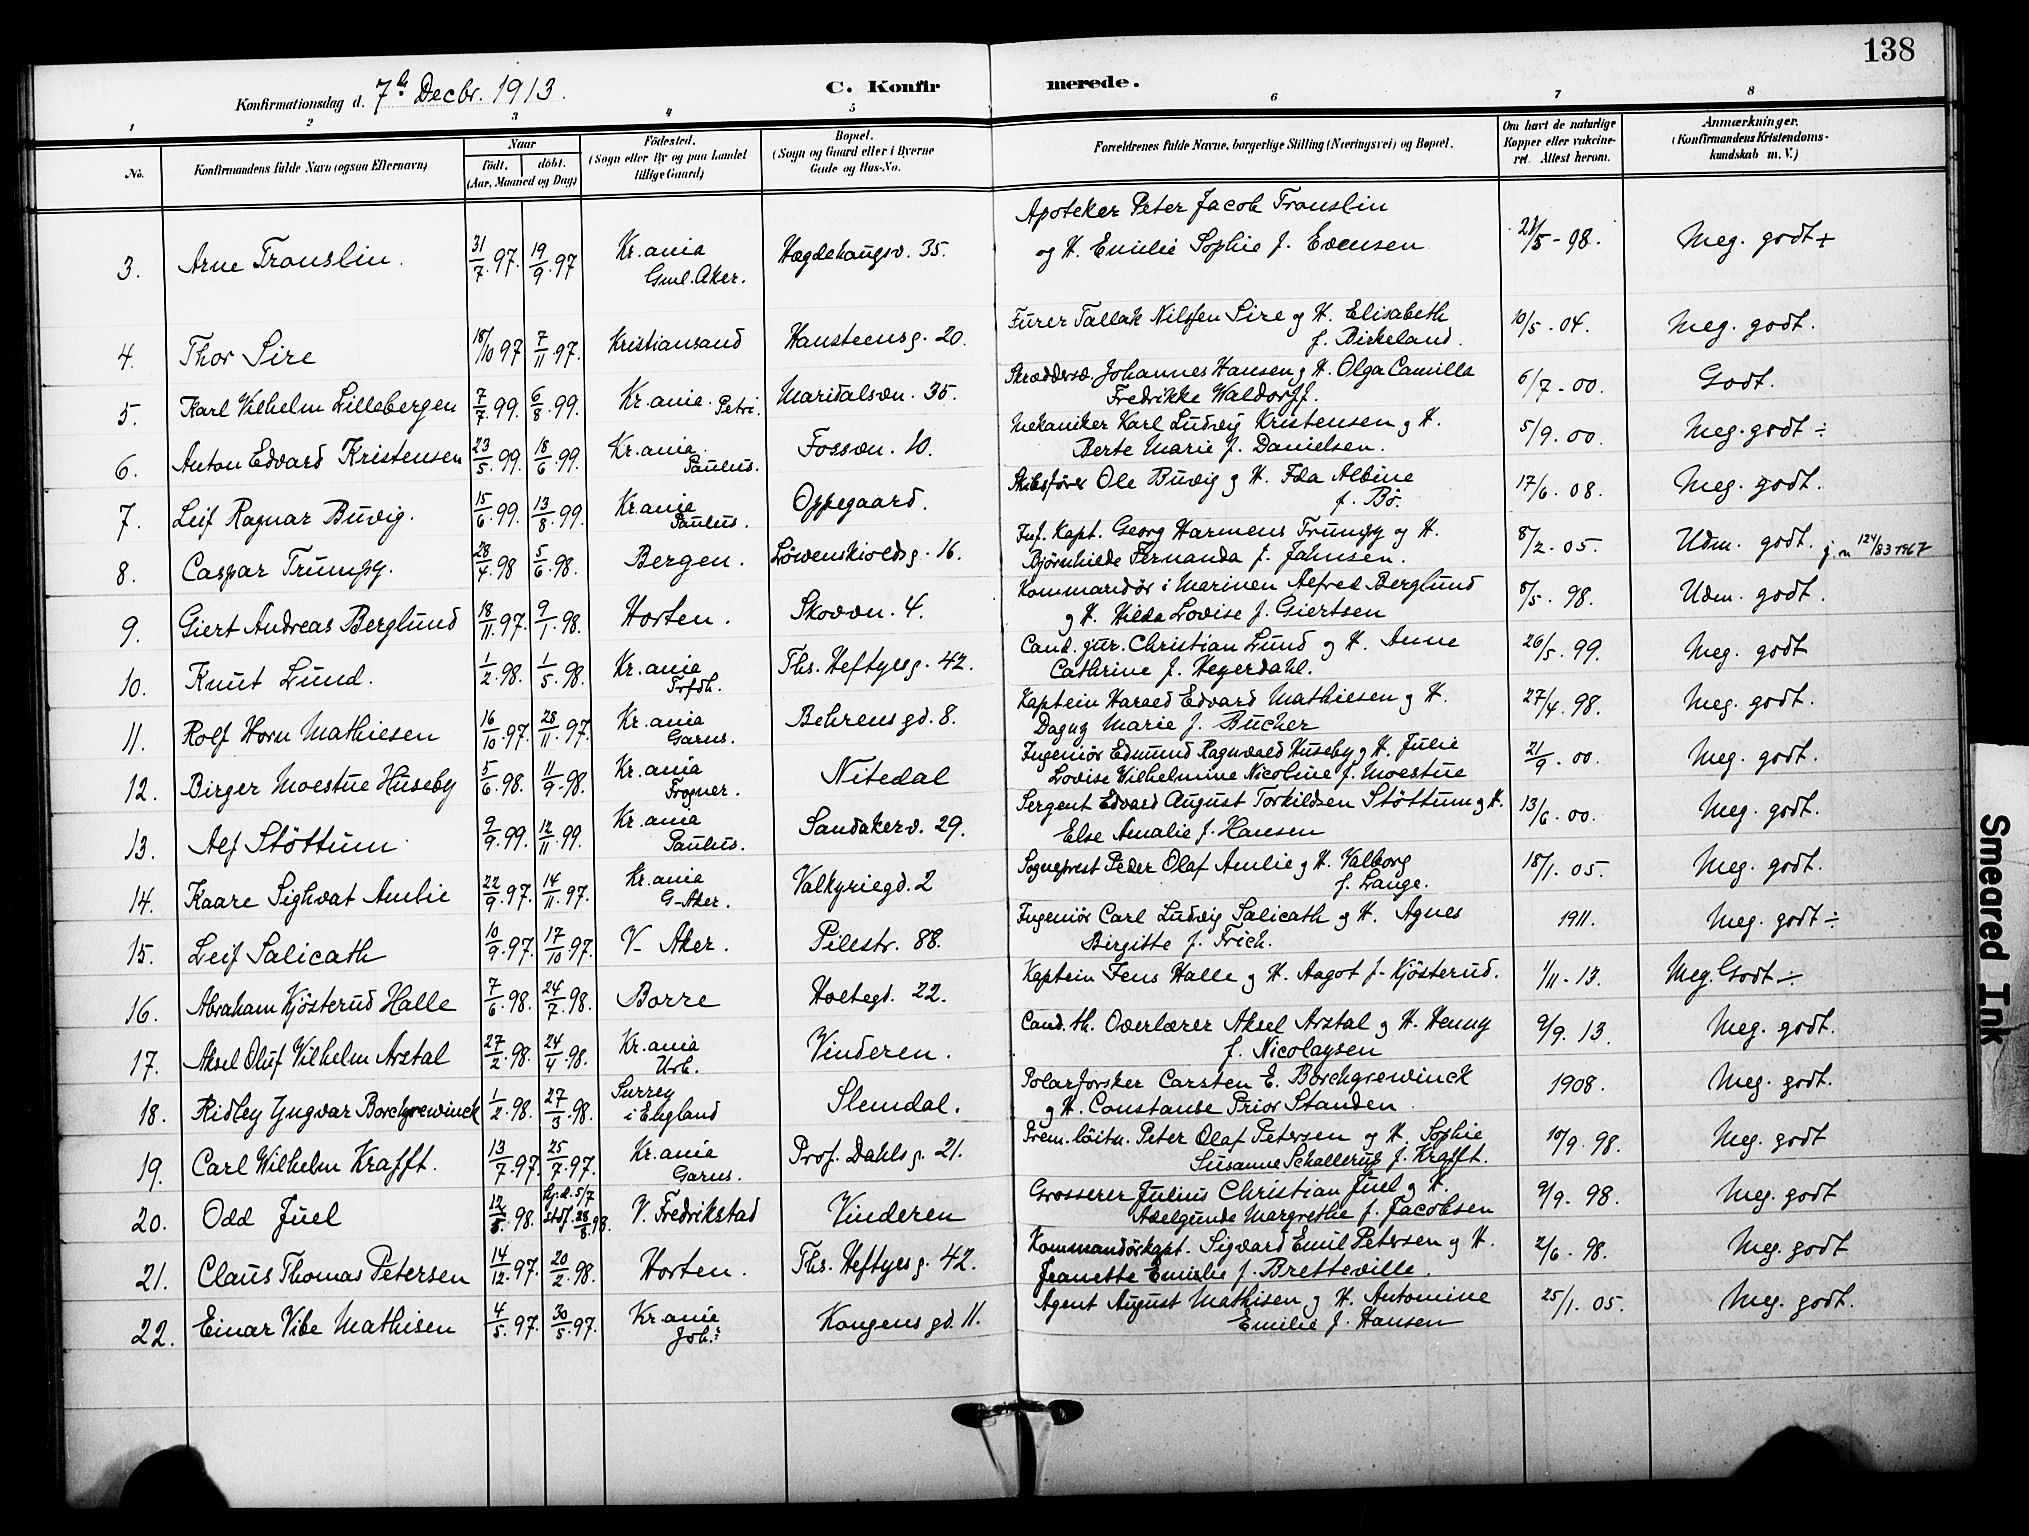 138
Konfirmationsdag d. 7de Decbr. 1913.
C. Konfirmerede.
1 2 3 4 5 6 7 8
No.
Konfirmandens fulde Navn (ogsaa Efternavn)
Naar
født. døbt.
(Aar, Maaned og Dag)
Fødested.
(Sogn eller By og paa Landet
tillige Gaard)
Bopæl.
(Sogn og Gaard eller i Byerne
Gade og Hus-No.
Forældrenes fulde Navne, borgerlige Stilling (Næringsvei) og Bopæl.
Om havt de naturlige
Kopper eller vakcine-
ret. Attest herom.
Anmærkninger.
(Konfirmandens Kristendoms-
kundskab m. V.)
3. Arne Translin. 31/7.97. 19/9.97 Kr.ania Gml. Aker. Hægdehaugsv. 35. Apoteker Peter Jacob Translin
og H. Emilie Sophie f. Evensen 21/5-98. Meg. godt+
4. Thor Sire 18/10 97 7/11.97. Kristiansand Hansteensg. 20. Furer Tallak Nilsen Sire og H. Elisabeth
f. Birkeland. 10/5.04. Meg. godt.
5. Karl Vilhelm Lillebergen 7/7.99. 6/8.99. Kr.ania. Petri. Maridalsvn. 35. Skræddersv. Johannes Hansen og H. Olga Camilla
Fredrikke Waldorff. 6/7-00. Godt.
6. Anton Edvard Kristensen 23/5.99. 18/6.99. Kr.ania. Paulus. Fossvn. 10. Mekaniker Karl Ludvig Kristensen og H.
Berte Marie f. Danielsen. 5/9.00. Meg. godt ÷
7. Leif Ragnar Buvig. 15/6.99. 13/8.99. Kr.ania Paulus. Oppegaard. Skibsfører Ole Buvig og H. Ida Albine
f. Bø. 17/6.08. Meg. godt.
8. Caspar Trumpy. 28/4.98 5/6.98. Bergen. Løwenskioldsg. 16. Inf. Kapt. Georg Harmens Trumpy og H.
Bjørnhilde Fernanda f. Jahnsen. 8/2-05. Udm. godt. j.n 124/83 1967
9. Giert Andreas Berglund 18/11.97. 9/1.98. Horten. Skovvn. 4. Kommandør i Marinen Alfred Berglund
og H. Hilda Lovise f. Giertsen 8/5.98. Udm. godt.
10. Knut Lund. 1/2.98. 1/5.98. Kr.ania Trfdh. Ths. Heftyesg. 42. Cand. jur. Christian Lund og H. Anne
Cathrine f. Hegerdahl. 26/5.99. Meg. godt
11. Rolf Horn Mathiesen 16/10.97. 28/11.97. Kr.ania Garns. Behrens gd. 8. Kaptein Harald Edvard Mathiesen og H.
Dagny Marie f. Bucher 27/4.98. Meg. godt.
12. Birger Moestue Huseby 5/6.98. 11/9.98. Kr.ania Frogner. Nitedal Ingeniør Edmund Ragnvald Huseby og H. Julie
Lovise Wilhelmine Nicoline f. Moestue 21/9.00. Meg. godt.
13. Alf Støttum 9/9.99. 12/11.99. Kr.ania Paulus. Sandakerv. 29. Sergent Edvard August Torkildsen Støttum og H.
Else Amalie f. Hansen 13/6.00. Meg. godt.
14. Kaare Sighvat Amlie 22/9.97. 14/11.97. Kr.ania G-Aker. Valkyriegd. 2 Sogneprest Peder Olaf Amlie og H. Valborg
f. Lange. 18/1.05. Meg. godt.
15. Leif Salicath 10/9.97. 17/10.97. V- Aker. Pilestr. 88. Ingeniør Carl Ludvig Salicath og H. Agnes
Birgitte f. Frich. 1911. Meg. godt ÷
16. Abraham Kjøsterud Halle 7/6.98. 24/7.98. Borre Holtegd. 22. Kaptein Jens Halle og H. Aagot f. Kjøsterud. 1/11-13. Meg. Godt ÷
17. Aksel Oluf Vilhelm Arstal 27/2.98. 24/4.98. Kr.ania Urb. Vinderen. Cand. th. Overlærer Aksel Arstal og H. Henny
f. Nicolaysen 9/9.13. Meg. godt.
18. Ridley Yngvar Borchgrewinck 1/2.98. 27/3.98. Surrey i England Slemdal. Polarforsker Carsten E. Borchgrewinck
og H. Constanse Prior Standen 1908. Meg. godt.
19. Carl Wilhelm Krafft. 13/7.97. 25/7.97. Kr.ania Garns. Prof. Dahlsg. 21. Prem. løitn. Peter Olaf Petersen og H. Sophie
Susanne Schallerup f. Krafft. 10/9.98. Meg. godt
20. Odd Juel 12/5.98. hj.d. 5/7 stdf. 28/8.98. V. Fredrikstad Vinderen Grosserer Julius Christian Juel og H.
Adelgunde Margrethe f. Jacobsen 9/9.98. Meg. godt
21. Claus Thomas Petersen 14/12.97. 20/2.98. Horten. Ths. Heftyesg. 42. Kommandørkapt. Sigvard Emil Petersen og H.
Jeanette Emilie f. Bretteville. 2/6-98. Meg. godt
22. Einar Vibe Mathisen 4/5.97. 30/5.97. Kr.ania Joh.s Kongens gd. 11. Agent August Mathisen og H. Antomine
Emilie f. Hansen 25/1.05. Meg. godt.
Smeared Ink